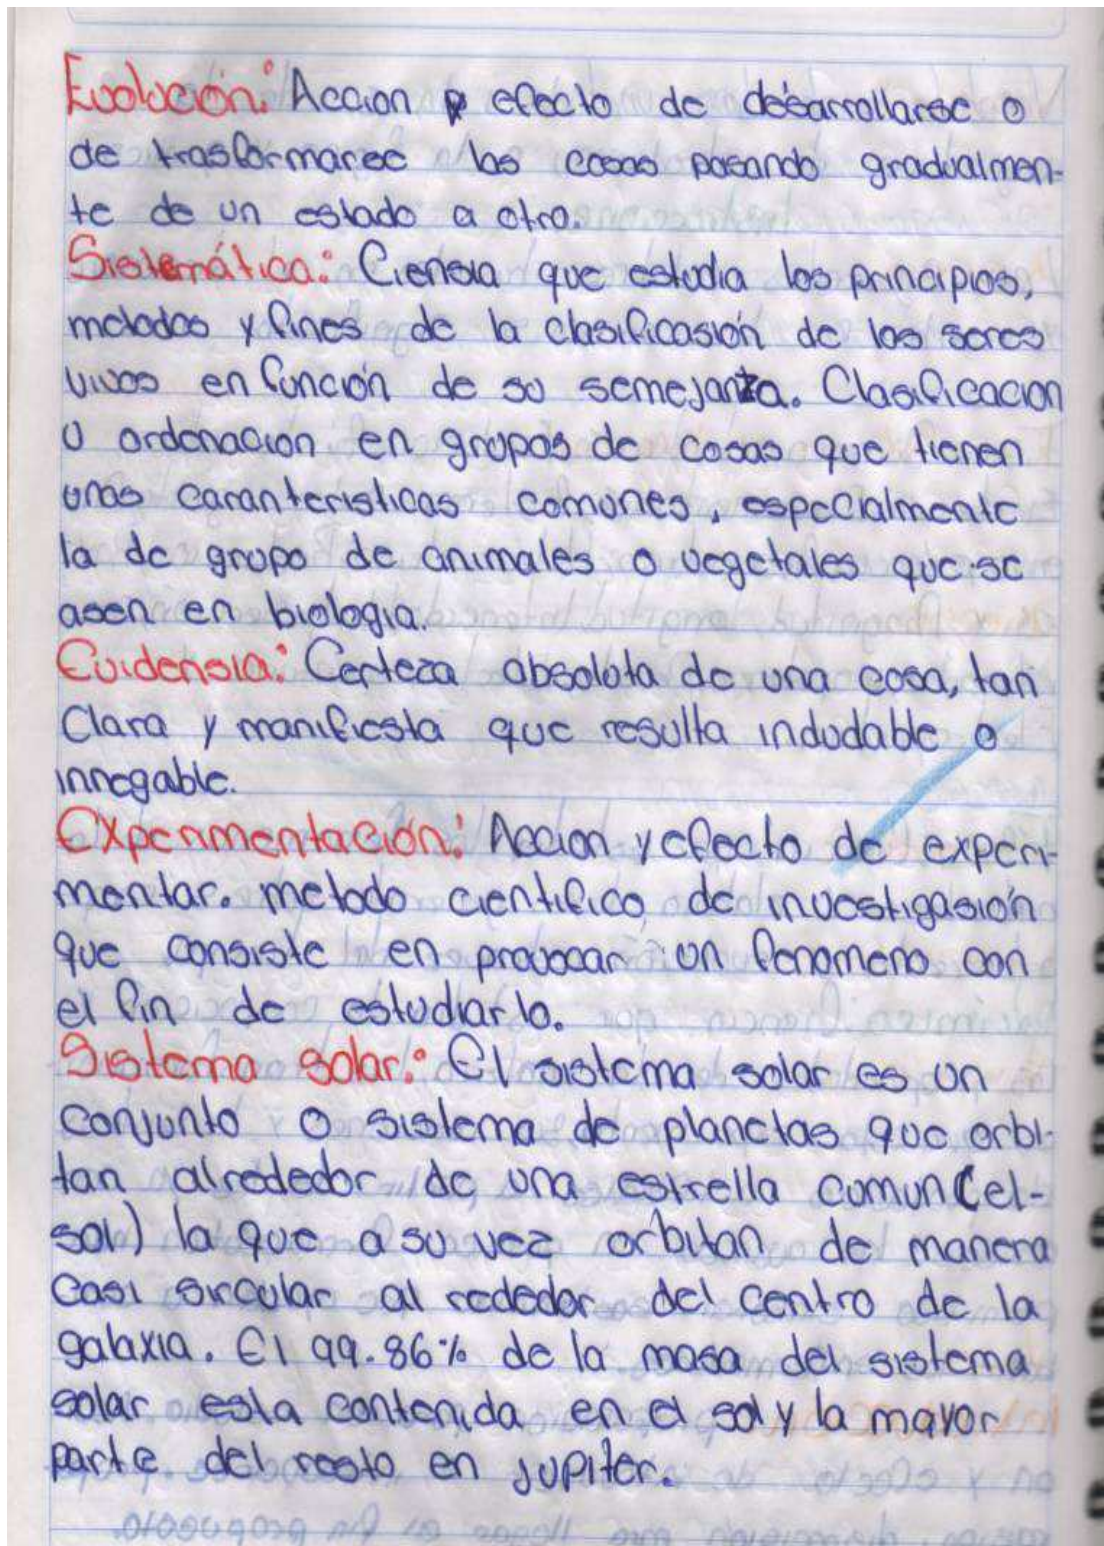 Evolución: Accion y efecto de desarrollarse o
de trasformarec las cosas pasando gradualmen-
te de un estado a otro.
Sistemática: Ciensia que estudia los principios,
metodos y fines de la clasificasión de los seres
vivos en función de su semejanza. Clasificacion
u ordenacion en grupos de cosas que tienen
unas caranteristicas comunes, especialmente
la de grupo de animales o vegetales que se
asen en biologia.
Evidensia: Certeza absoluta de una cosa, tan
Clara y manifiesta que resulta indudable o
innegable.
Experimentación: Accion y efecto de experi-
mentar. metodo cientifico de investigasión
que consiste en provocar un fenomeno con
el fin de estudiarlo.
Sistema solar: El sistema solar es un
conjunto o sistema de planetas que orbi-
tan alrededor de una estrella comun (el-
sol) la que a su vez orbitan de manera
casi sircular al rededor del centro de la
galaxia. El 99.86% de la masa del sistema
solar esta contenida en el sol y la mayor
parte del resto en jupiter.